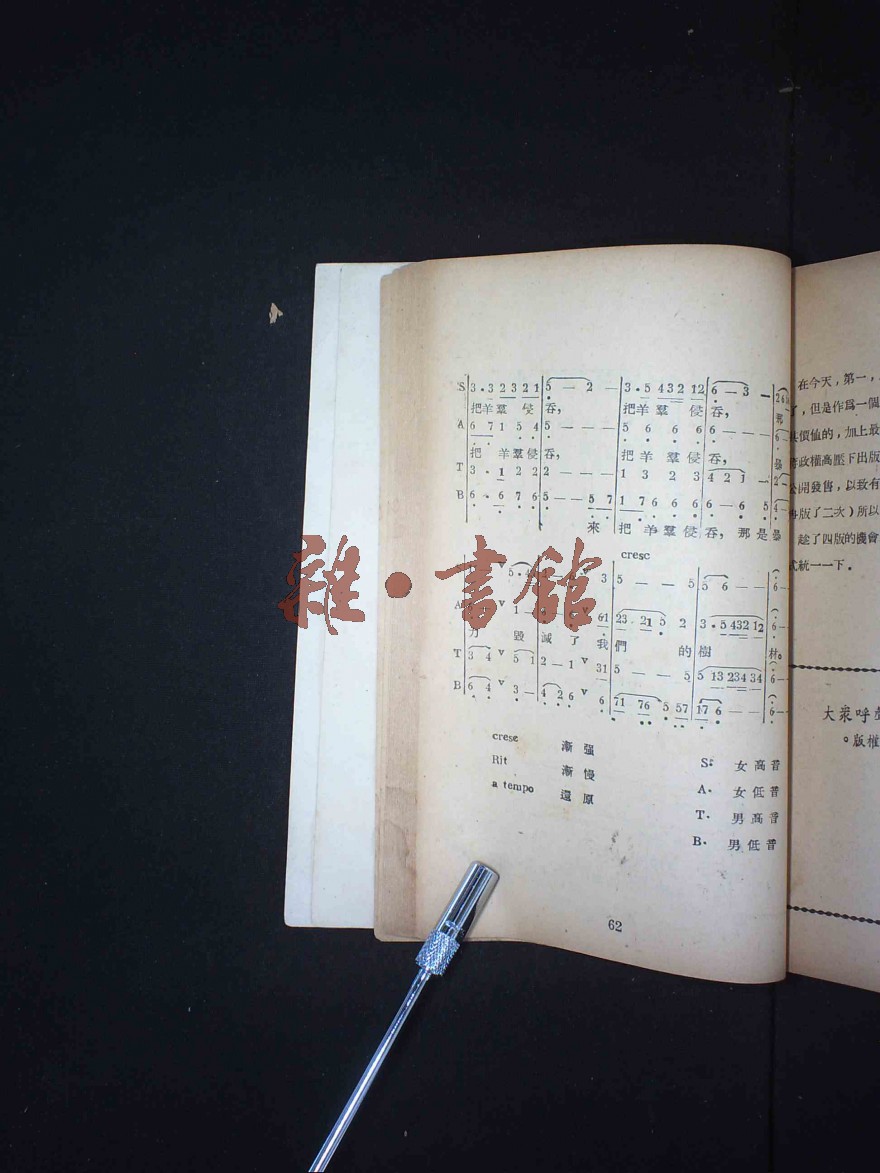 S 3·3 2 3 2 1 5 — 2 — 3·5 4 3 2 1 2 6 — 3 —
把羊羣 侵 吞, 把羊羣 侵 吞, 那
A 6 7 1 5 4 5 — — — 5 6 6 6 6 — — —
把 羊羣侵吞, 把 羊 羣 侵 吞, 暴
T 3· 1 2 2 2 — — — 1 3 2 3 4 2 1 — 2
B 6· 6 7 6 5 — — 5 7 1 7 6 6 6 6 — 6 5 4
來 把 羊羣侵吞, 那是暴
cresc
3 5 — — 5 5 6 — — 6
A 1 — 61 23 21 5 2 3·5 432 12 6
力 毀 滅 了 我們 的 樹 林。
T 3 4 v 5 1 2 — 1 v 31 5 — — 5 5 13 234 34 6
B 6 4 v 3 — 4 2 6 v 71 76 5 57 17 6 — — 6
cresc 漸 强
Rit 漸 慢
a tempo 還 原
S· 女 高 音
A· 女 低 音
T· 男 高 音
B· 男 低 音
62
在今天,第一,
了,但是作爲一個
價值的,加上最
政權高壓下出版
公開發售,以致有
版了二次)所以
趁了四版的機會
式統一一下。
大衆呼
。版權
雜·書館